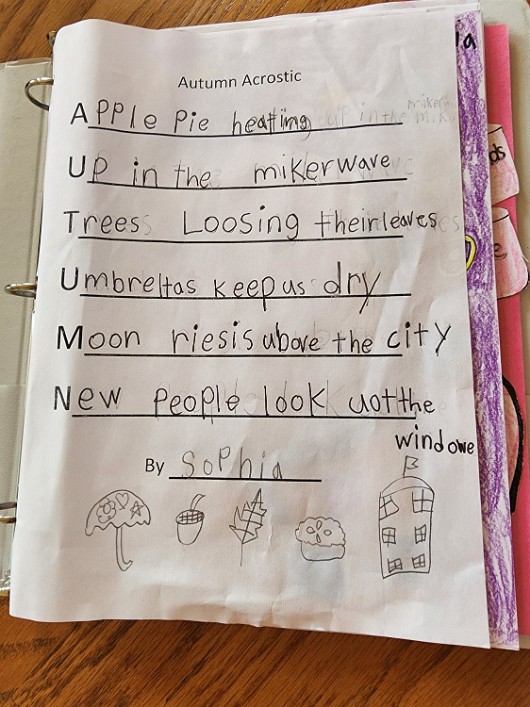 Autumn Acrostic
Apple Pie heating
Up in the mikerwave
Trees Loosing their leaves
Umbrellas keep us dry
Moon riesis above the city
New people look uot the
windowe
By Sophia